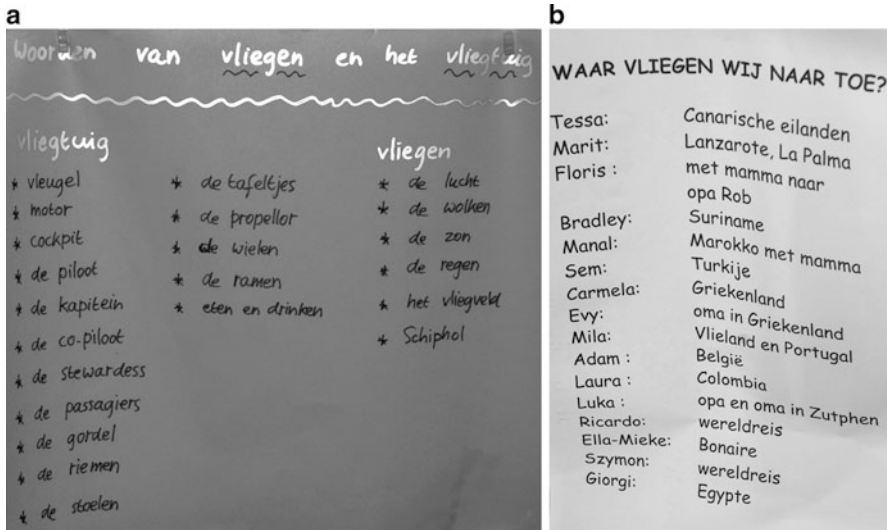 a
Woorden van vliegen en het vliegtuig
vliegtuig
* vleugel
* motor
* cockpit
* de piloot
* de kapitein
* de co-piloot
* de stewardess
* de passagiers
* de gordel
* de riemen
* de stoelen
* de tafeltjes
* de propellor
* de wielen
* de ramen
* eten en drinken
vliegen
* de lucht
* de wolken
* de zon
* de regen
* het vliegveld
* Schiphol
b
WAAR VLIEGEN WIJ NAAR TOE?
Tessa: Canarische eilanden
Marit: Lanzarote, La Palma
Floris : met mamma naar
opa Rob
Bradley: Suriname
Manal: Marokko met mamma
Sem: Turkije
Carmela: Griekenland
Evy: oma in Griekenland
Mila: Vlieland en Portugal
Adam : België
Laura : Colombia
Luka : opa en oma in Zutphen
Ricardo: wereldreis
Ella-Mieke: Bonaire
Szymon: wereldreis
Giorgi: Egypte